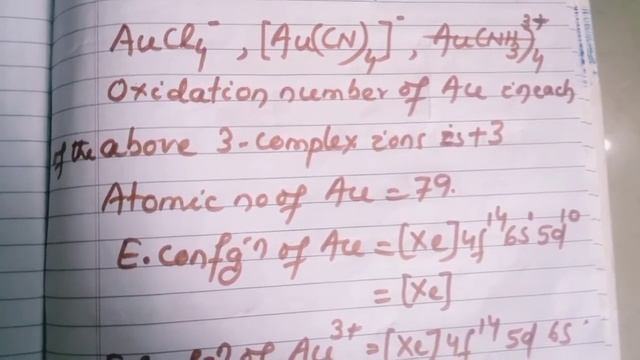 AuCl₄⁻, [Au(CN)₄]⁻, Au(NH₃)₄³⁺
Oxidation number of Au in each
of the above 3-complex ions is +3
Atomic no of Au = 79.
E. confgⁿ of Au = [Xe] 4f¹⁴ 6s¹ 5d¹⁰
= [Xe]
of Au³⁺ = [Xe] 4f¹⁴ 5d 6s